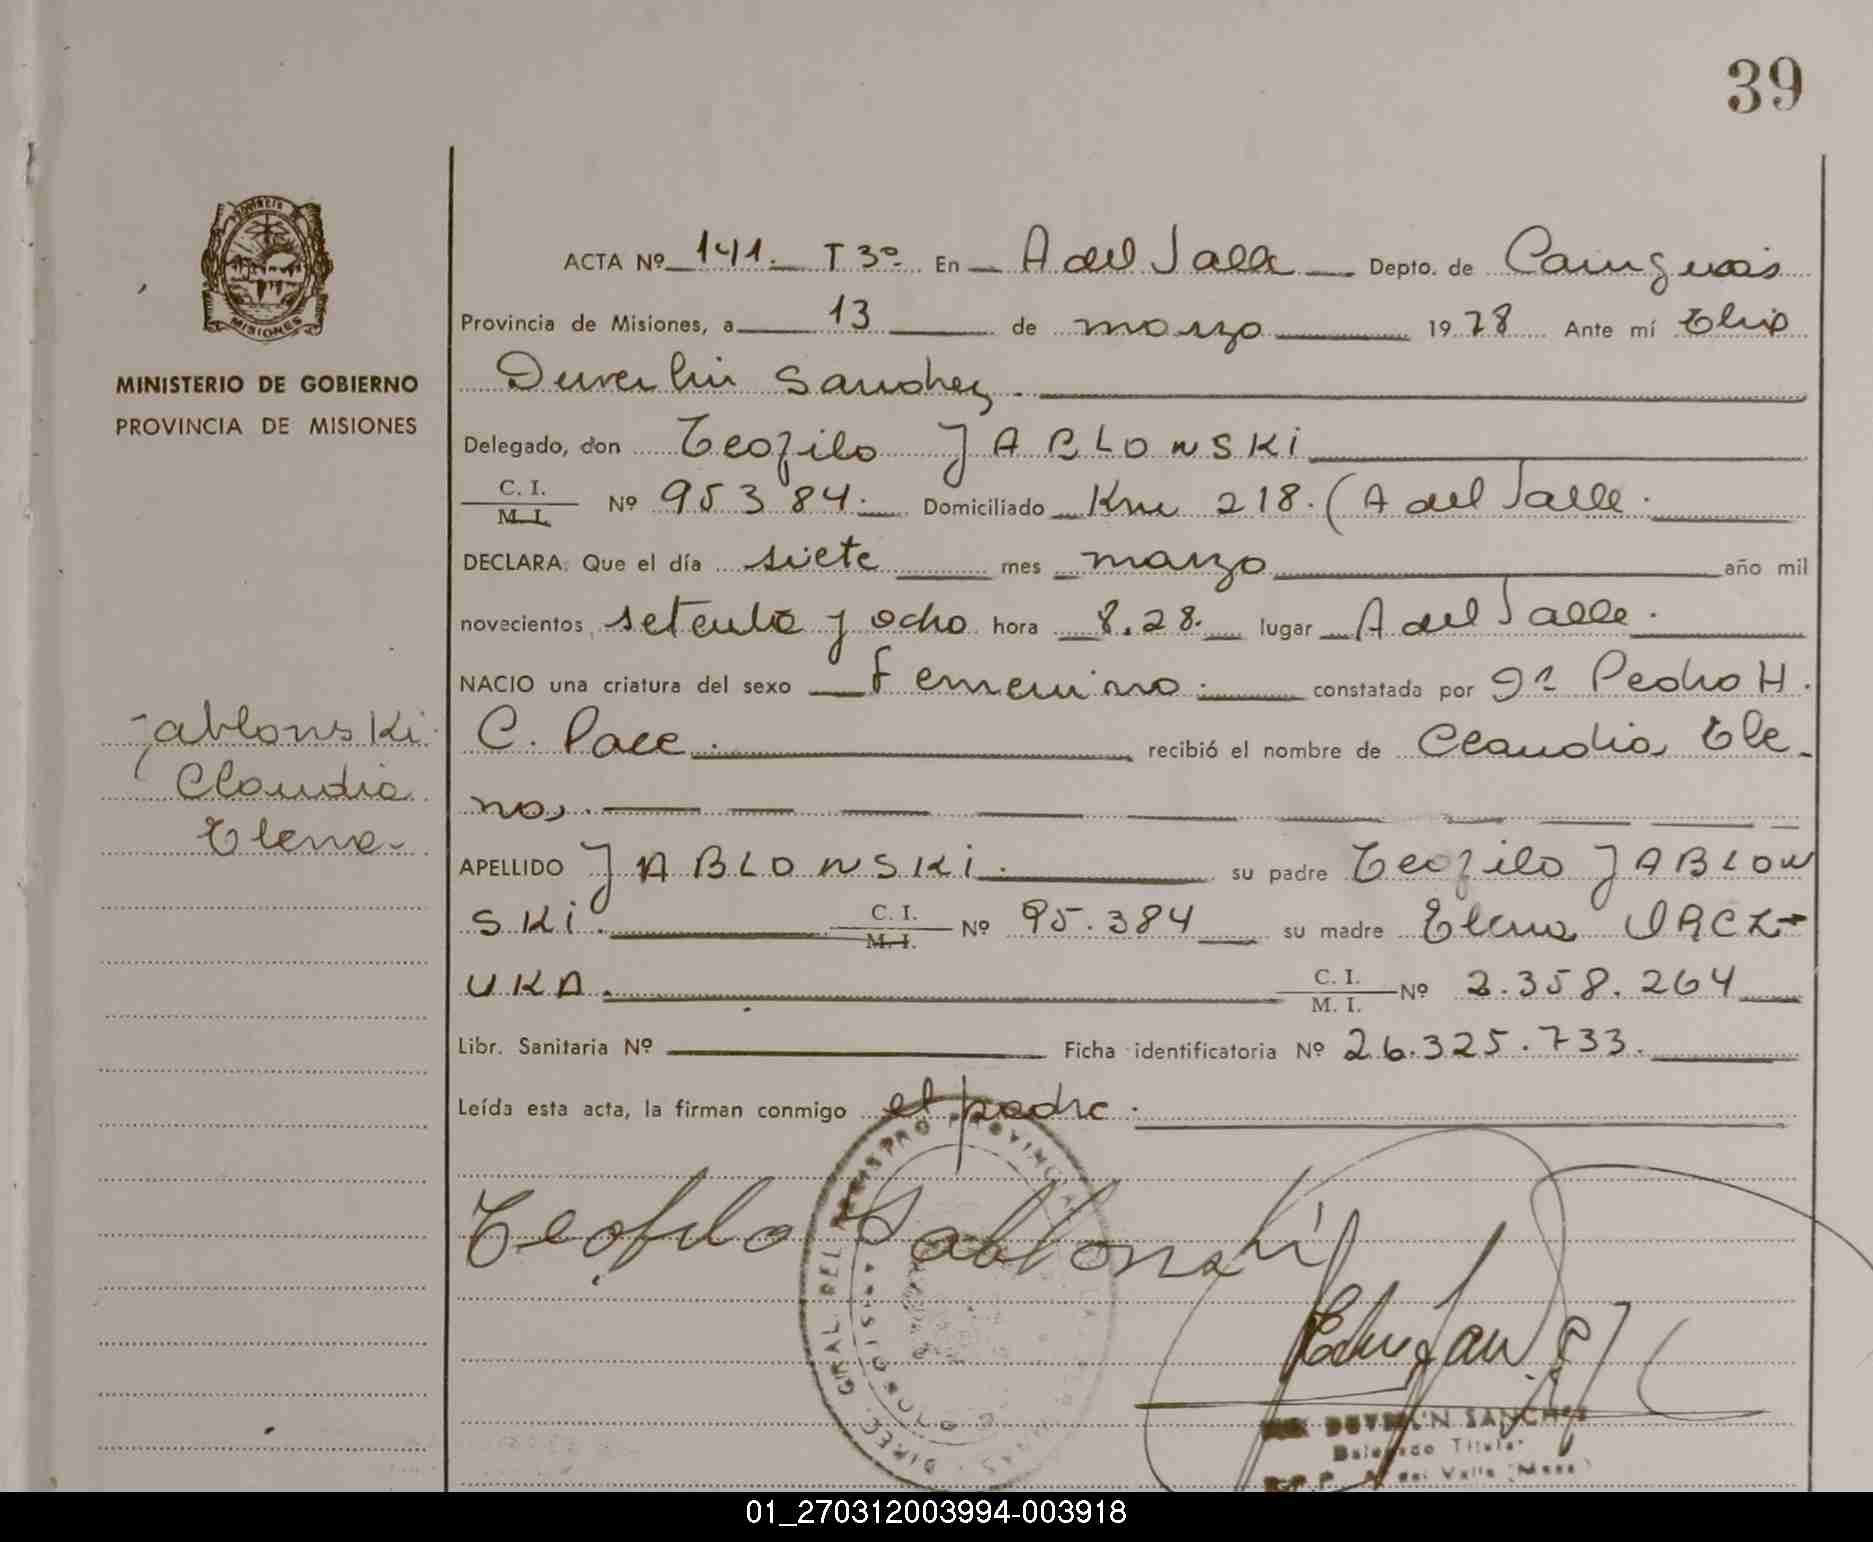 39
PROVINCIA DE
MISIONES
MINISTERIO DE GOBIERNO
PROVINCIA DE MISIONES
Jablonski
Claudia
Elena
ACTA Nº 141. T 3º En A del Valle Depto. de Cainguás
Provincia de Misiones, a 13 de marzo 1978 Ante mí Elix
Duverlin Sanchez.
Delegado, don Teofilo JABLONSKI
C. I.
M. I. Nº 95384. Domiciliado Km 218. (A del Valle.
DECLARA: Que el día siete mes marzo año mil
novecientos setenta y ocho hora 8.28. lugar A del Valle.
NACIO una criatura del sexo Femenino. constatada por Dr Pedro H.
C. Pace. recibió el nombre de Claudia Ele-
na,.
APELLIDO JABLONSKI. su padre Teofilo JABLON
SKI. C. I.
M. I. Nº 95.384 su madre Elena
UKA. C. I.
M. I. Nº 2.358.264
Libr. Sanitaria Nº Ficha identificatoria Nº 26.325.733.
Leída esta acta, la firman conmigo el padre.
Teofilo Jablonski
DIREC. GRAL. DEL REGISTRO PROVINCIAL
DUVERLIN SANCHEZ
Delegado Titular
A. del Valle (Mnes)
01_270312003994-003918